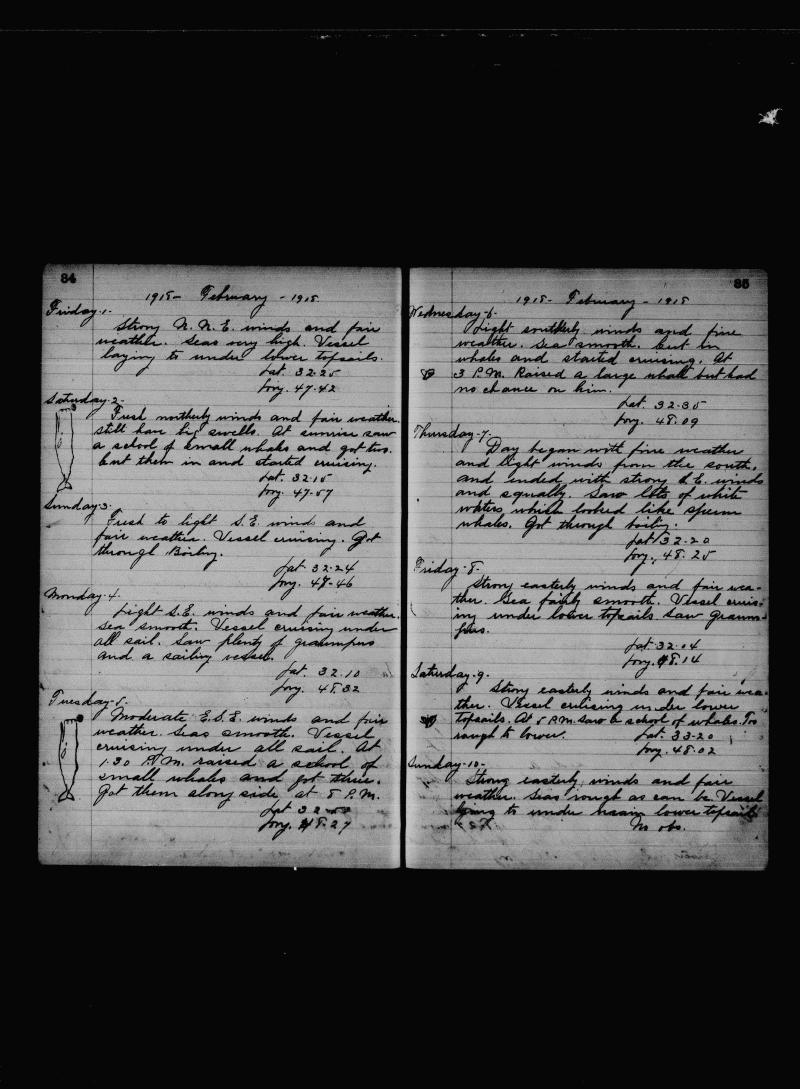 84
1918 - February - 1918
Friday-1-
Strong N.N.E. winds and fair
weather. Seas very high. Vessel
laying to under lower topsails.
Lat. 32-25
Long. 47-42
Saturday-2-
Fresh northerly winds and fair weather.
still have big swells. At sunrise saw
a school of small whales and got two.
Cut them in and started cruising.
Lat. 32-15
Long. 47-57
Sunday-3-
Fresh to light S.E. winds and
fair weather. Vessel cruising. Got
through Boiling.
Lat. 32-24
Long. 47-46
Monday-4-
Light S.E. winds and fair weather.
Sea smooth. Vessel cruising under
all sail. Saw plenty of grampus
and a sailing vessel.
Lat. 32.10
Long. 48.32
Tuesday-5-
Moderate E.S.E. winds and fair
weather. Seas smooth. Vessel
cruising under all sail. At
1.30 P.M. raised a school of
small whales and got three.
Got them along side at 8 P.M.
Lat 32
Long. 48.27
85
1918 - February - 1918
Wednesday-6-
Light southerly winds and fine
weather. Sea smooth. Cut in
whales and started cruising. At
3 P.M. Raised a large whale but had
no chance on him.
Lat. 32-35
Long. 48.09
Thursday-7-
Day began with fine weather
and light winds from the south,
and ended with strong S.E. winds
and squally. Saw lots of white
waters which looked like sperm
whales. Got through boiling.
Lat 32-20
Long. 48.25
Friday-8-
Strong easterly winds and fair wea-
ther. Sea fairly smooth. Vessel cruis-
ing under lower topsails. Saw gram-
pus.
Lat. 32.04
Long. 48.14
Saturday-9-
Strong easterly winds and fair wea-
ther. Vessel cruising under lower
topsails. At 5 P.M. saw a school of whales. Too
rough to lower. Lat. 33-20
Long. 48.02
Sunday-10-
Strong easterly winds and fair
weather. Seas rough as can be. Vessel
lying to under lower topsails
No obs.